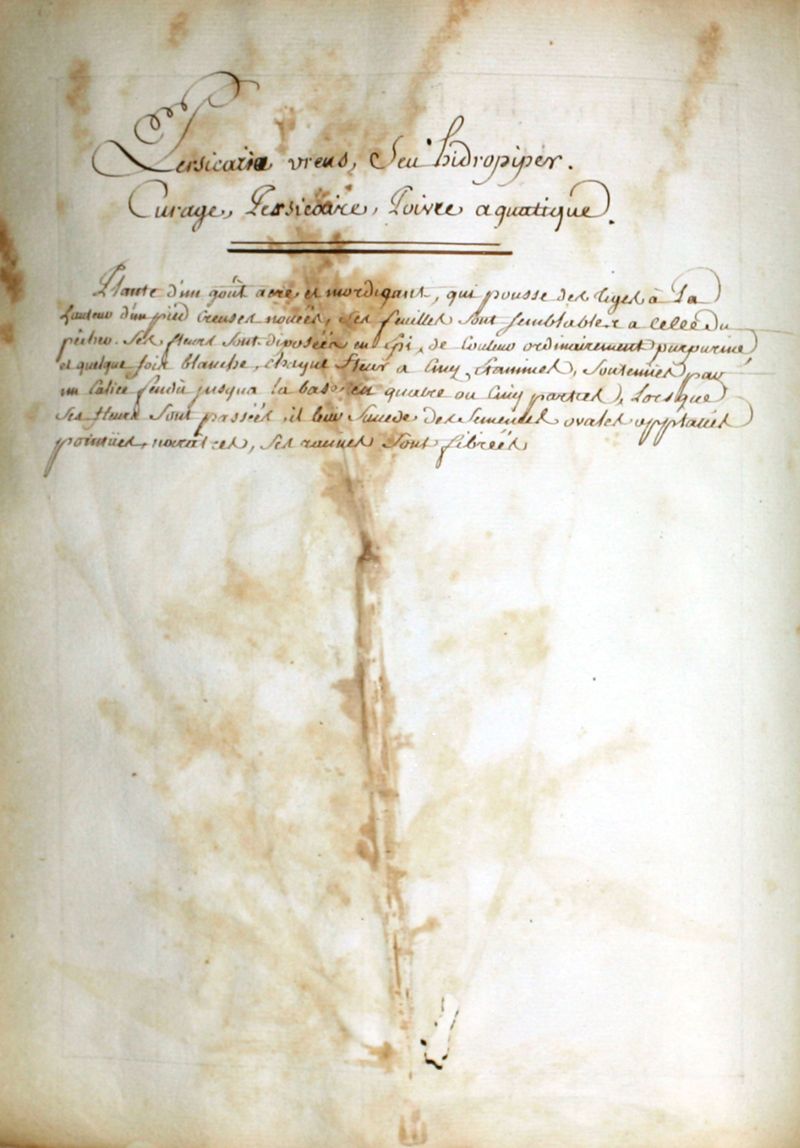 Persicaria urens, Seu hidropiper.
Curage, Persicaire, Poivre aquatique.
Plante d'un goût acre et mordicant, qui pousse des tiges à La
hauteur d'un pied Creuses nouées, Ses feuilles Sont Semblables a celle du
pécher. Ses fleurs Sont disposées en Epi, de Couleur ordinairement purpurine
et quelque fois blanche, chaque fleur a Cinq Etamines, Soutenues par
un Calice fendu jusqua la base en quatre ou Cinq parties, Lorsque
Ses fleurs Sont passées, il leur Succede des Semences ovales applaties
pointües, noiratres, Ses racines Sont fibrées